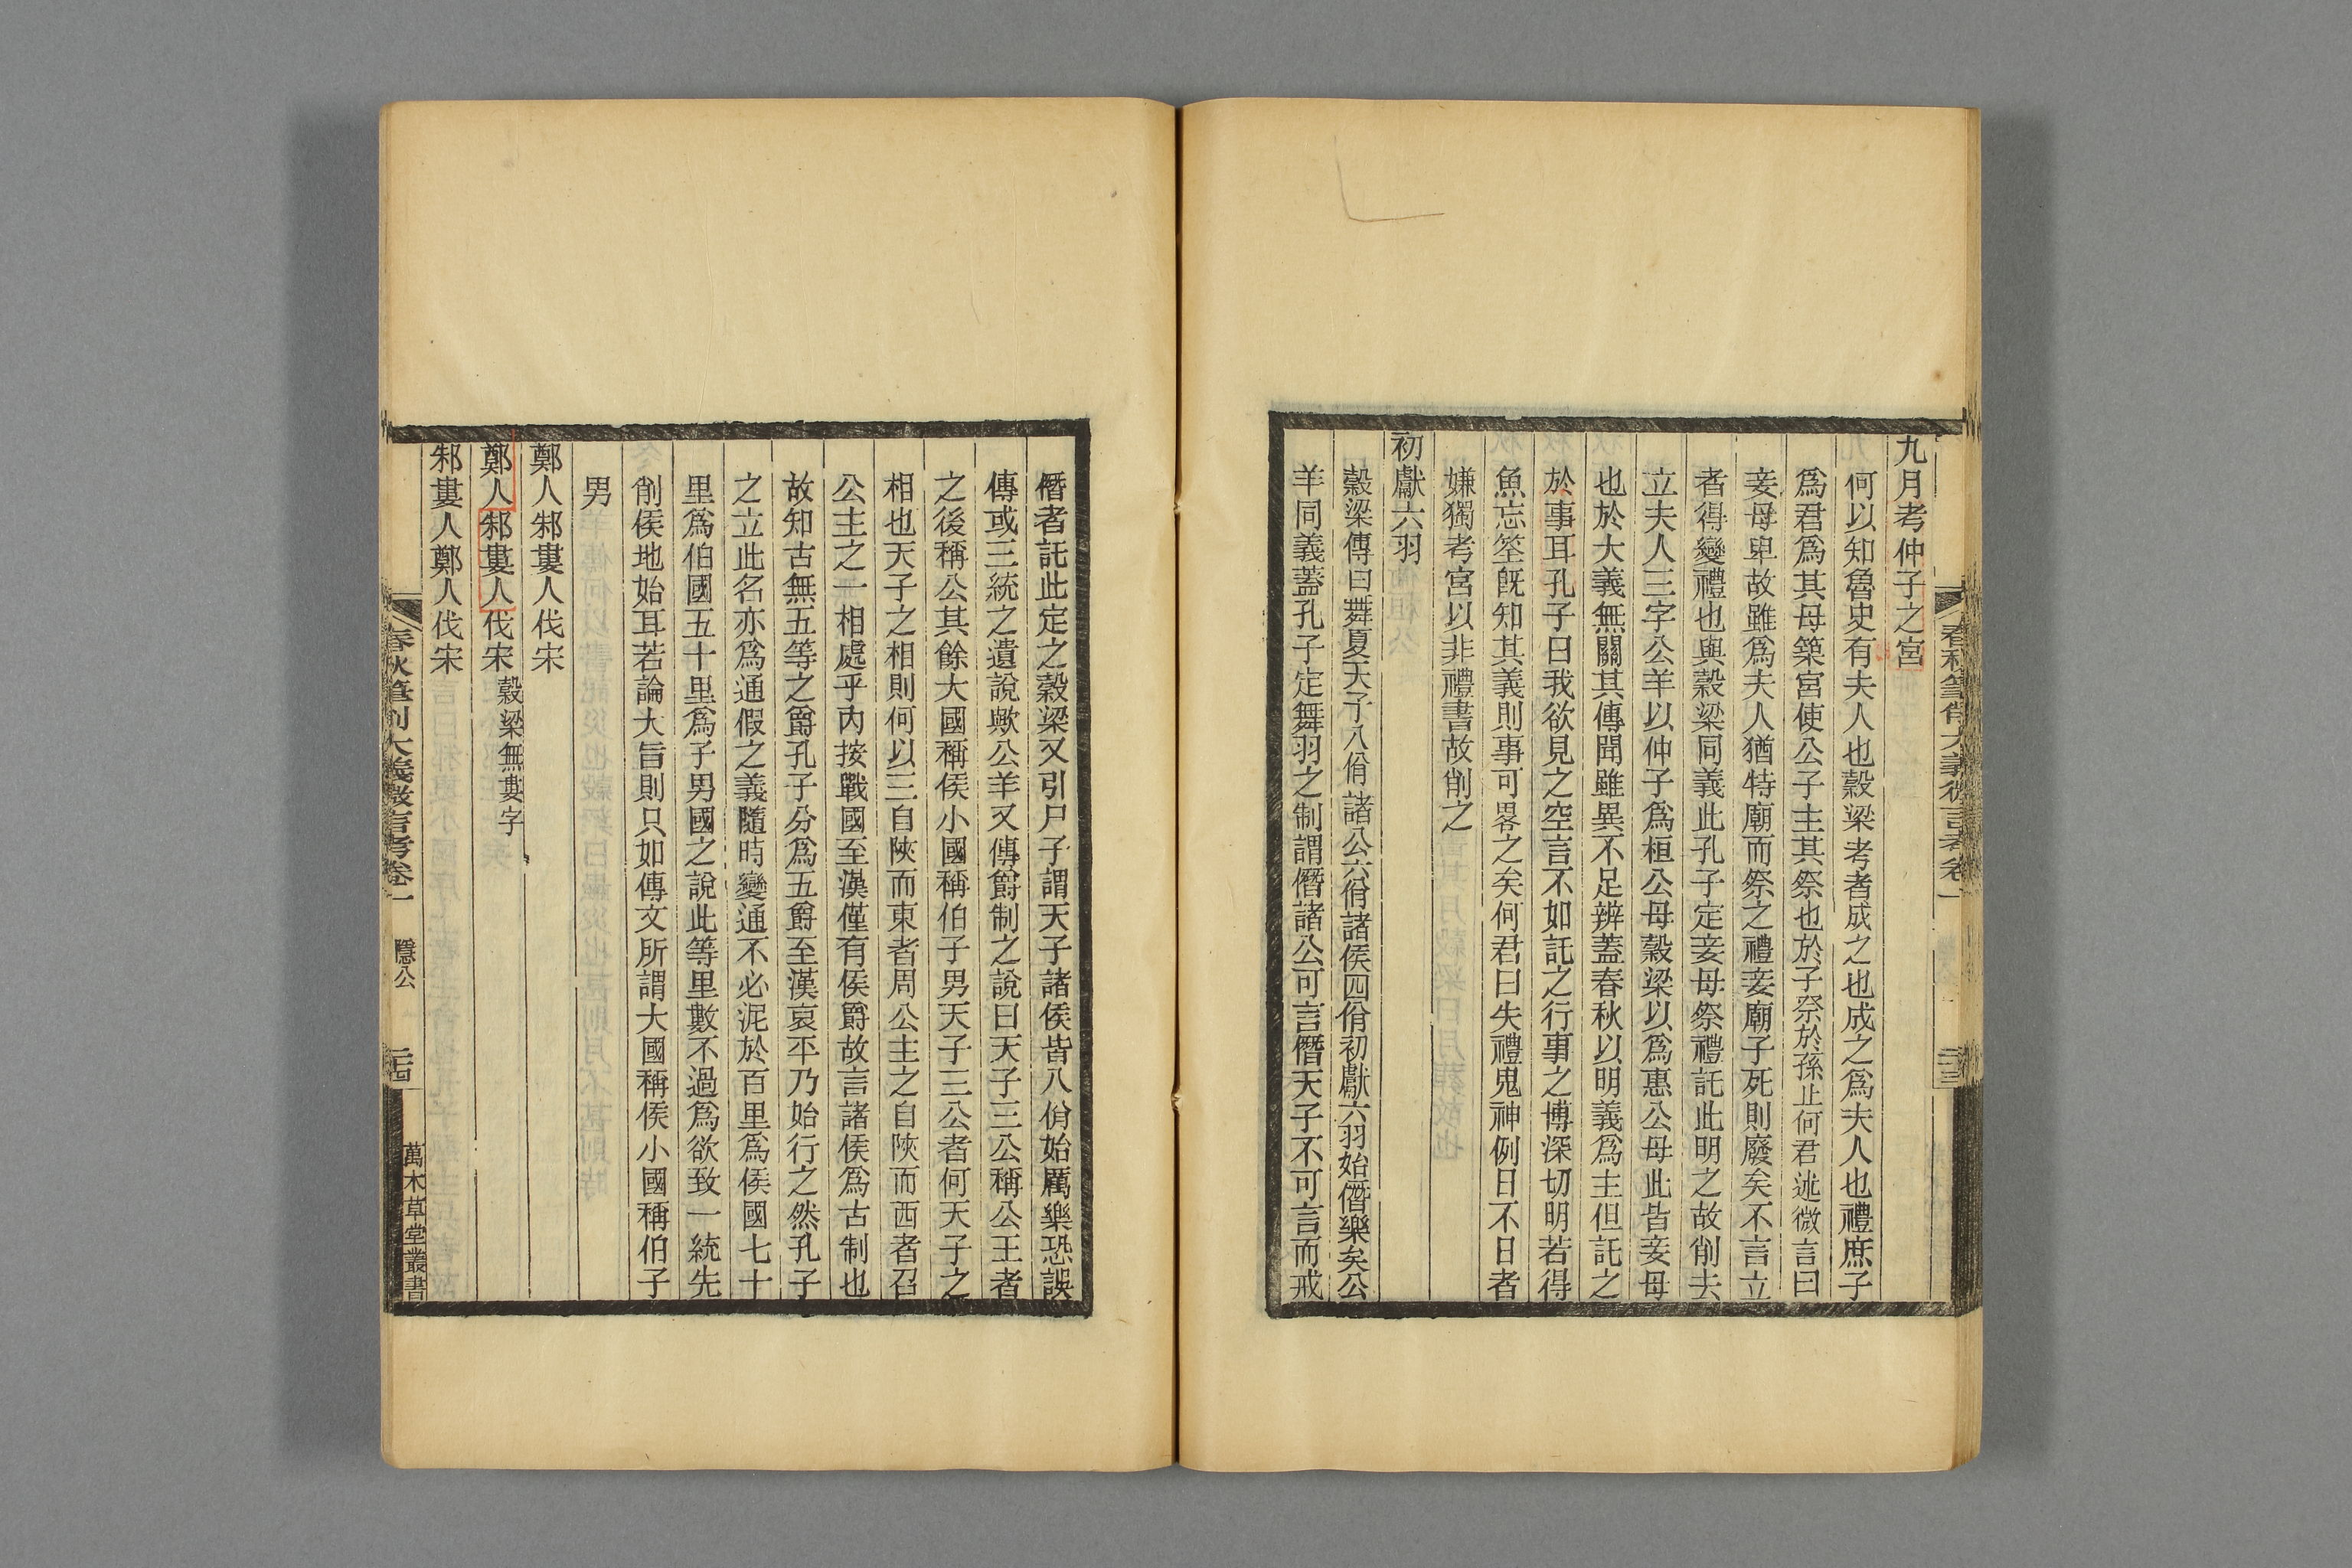 九月考仲子之宮
何以知魯史有夫人也穀梁考者成之也成之爲夫人也禮庶子
爲君爲其母築宮使公子主其祭也於子祭於孫止何君述微言曰
妾母卑故雖爲夫人猶特廟而祭之禮妾廟子死則廢矣不言立
者得變禮也與穀梁同義此孔子定妾母祭禮託此明之故削去
立夫人三字公羊以仲子爲桓公母穀梁以爲惠公母此皆妾母
也於大義無關其傳聞雖異不足辨蓋春秋以明義爲主但託之
於事耳孔子曰我欲見之空言不如託之行事之博深切明若得
魚忘筌既知其義則事可畧之矣何君曰失禮鬼神例日不日者
嫌獨考宮以非禮書故削之
初獻六羽
穀梁傳曰舞夏天子八佾諸公六佾諸侯四佾初獻六羽始僭樂矣公
羊同義蓋孔子定舞羽之制謂僭諸公可言僭天子不可言而戒
春秋筆削大義微言考卷一
二十三
僭者託此定之穀梁又引尸子謂天子諸侯皆八佾始厲樂恐誤
傳或三統之遺說歟公羊又傳爵制之說曰天子三公稱公王者
之後稱公其餘大國稱侯小國稱伯子男天子三公者何天子之
相也天子之相則何以三自陝而東者周公主之自陝而西者召
公主之一相處乎內按戰國至漢僅有侯爵故言諸侯爲古制也
故知古無五等之爵孔子分爲五爵至漢哀平乃始行之然孔子
之立此名亦爲通假之義隨時變通不必泥於百里爲侯國七十
里爲伯國五十里爲子男國之說此等里數不過爲欲致一統先
削侯地始耳若論大旨則只如傳文所謂大國稱侯小國稱伯子
男
鄭人邾婁人伐宋
鄭人邾婁人伐宋 穀梁無婁字
邾婁人鄭人伐宋
春秋筆削大義微言考卷一 隱公 二十四 萬木草堂叢書